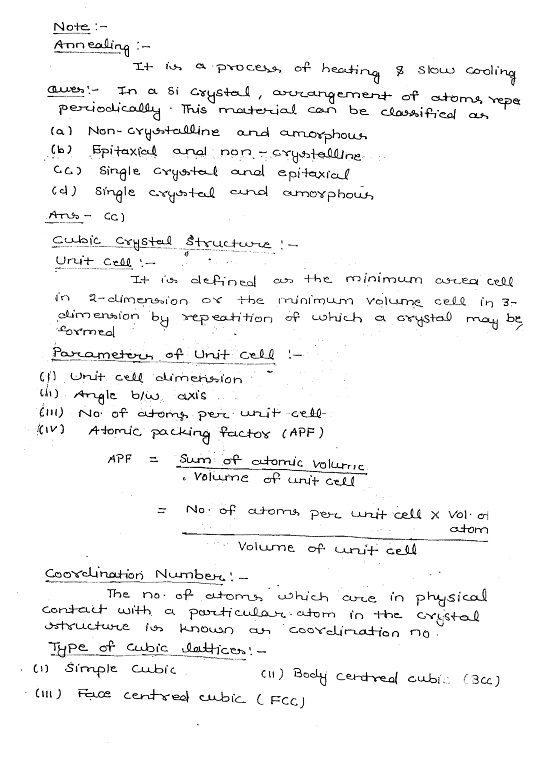 Note :-
Annealing :-
It is a process of heating & slow cooling
Ques:- In a Si crystal, arrangement of atoms repe
periodically. This material can be classified as
(a) Non-crystalline and amorphous
(b) Epitaxial and non-crystalline
(c) Single crystal and epitaxial
(d) Single crystal and amorphous
Ans - (c)
Cubic Crystal Structure :-
Unit Cell :-
It is defined as the minimum area cell
in 2-dimension or the minimum volume cell in 3-
dimension by repeatition of which a crystal may be
formed
Parameters of Unit cell :-
(i) Unit cell dimension
(ii) Angle b/w axis
(iii) No of atoms per unit cell
(iv) Atomic packing factor (APF)
APF = Sum of atomic volume
Volume of unit cell
= No. of atoms per unit cell x Vol. of
atom
Volume of unit cell
Coordination Number :-
The no. of atoms which are in physical
contact with a particular atom in the crystal
structure is known as coordination no.
Type of cubic lattices :-
(i) Simple Cubic (ii) Body centred cubic (BCC)
(iii) Face centred cubic (FCC)